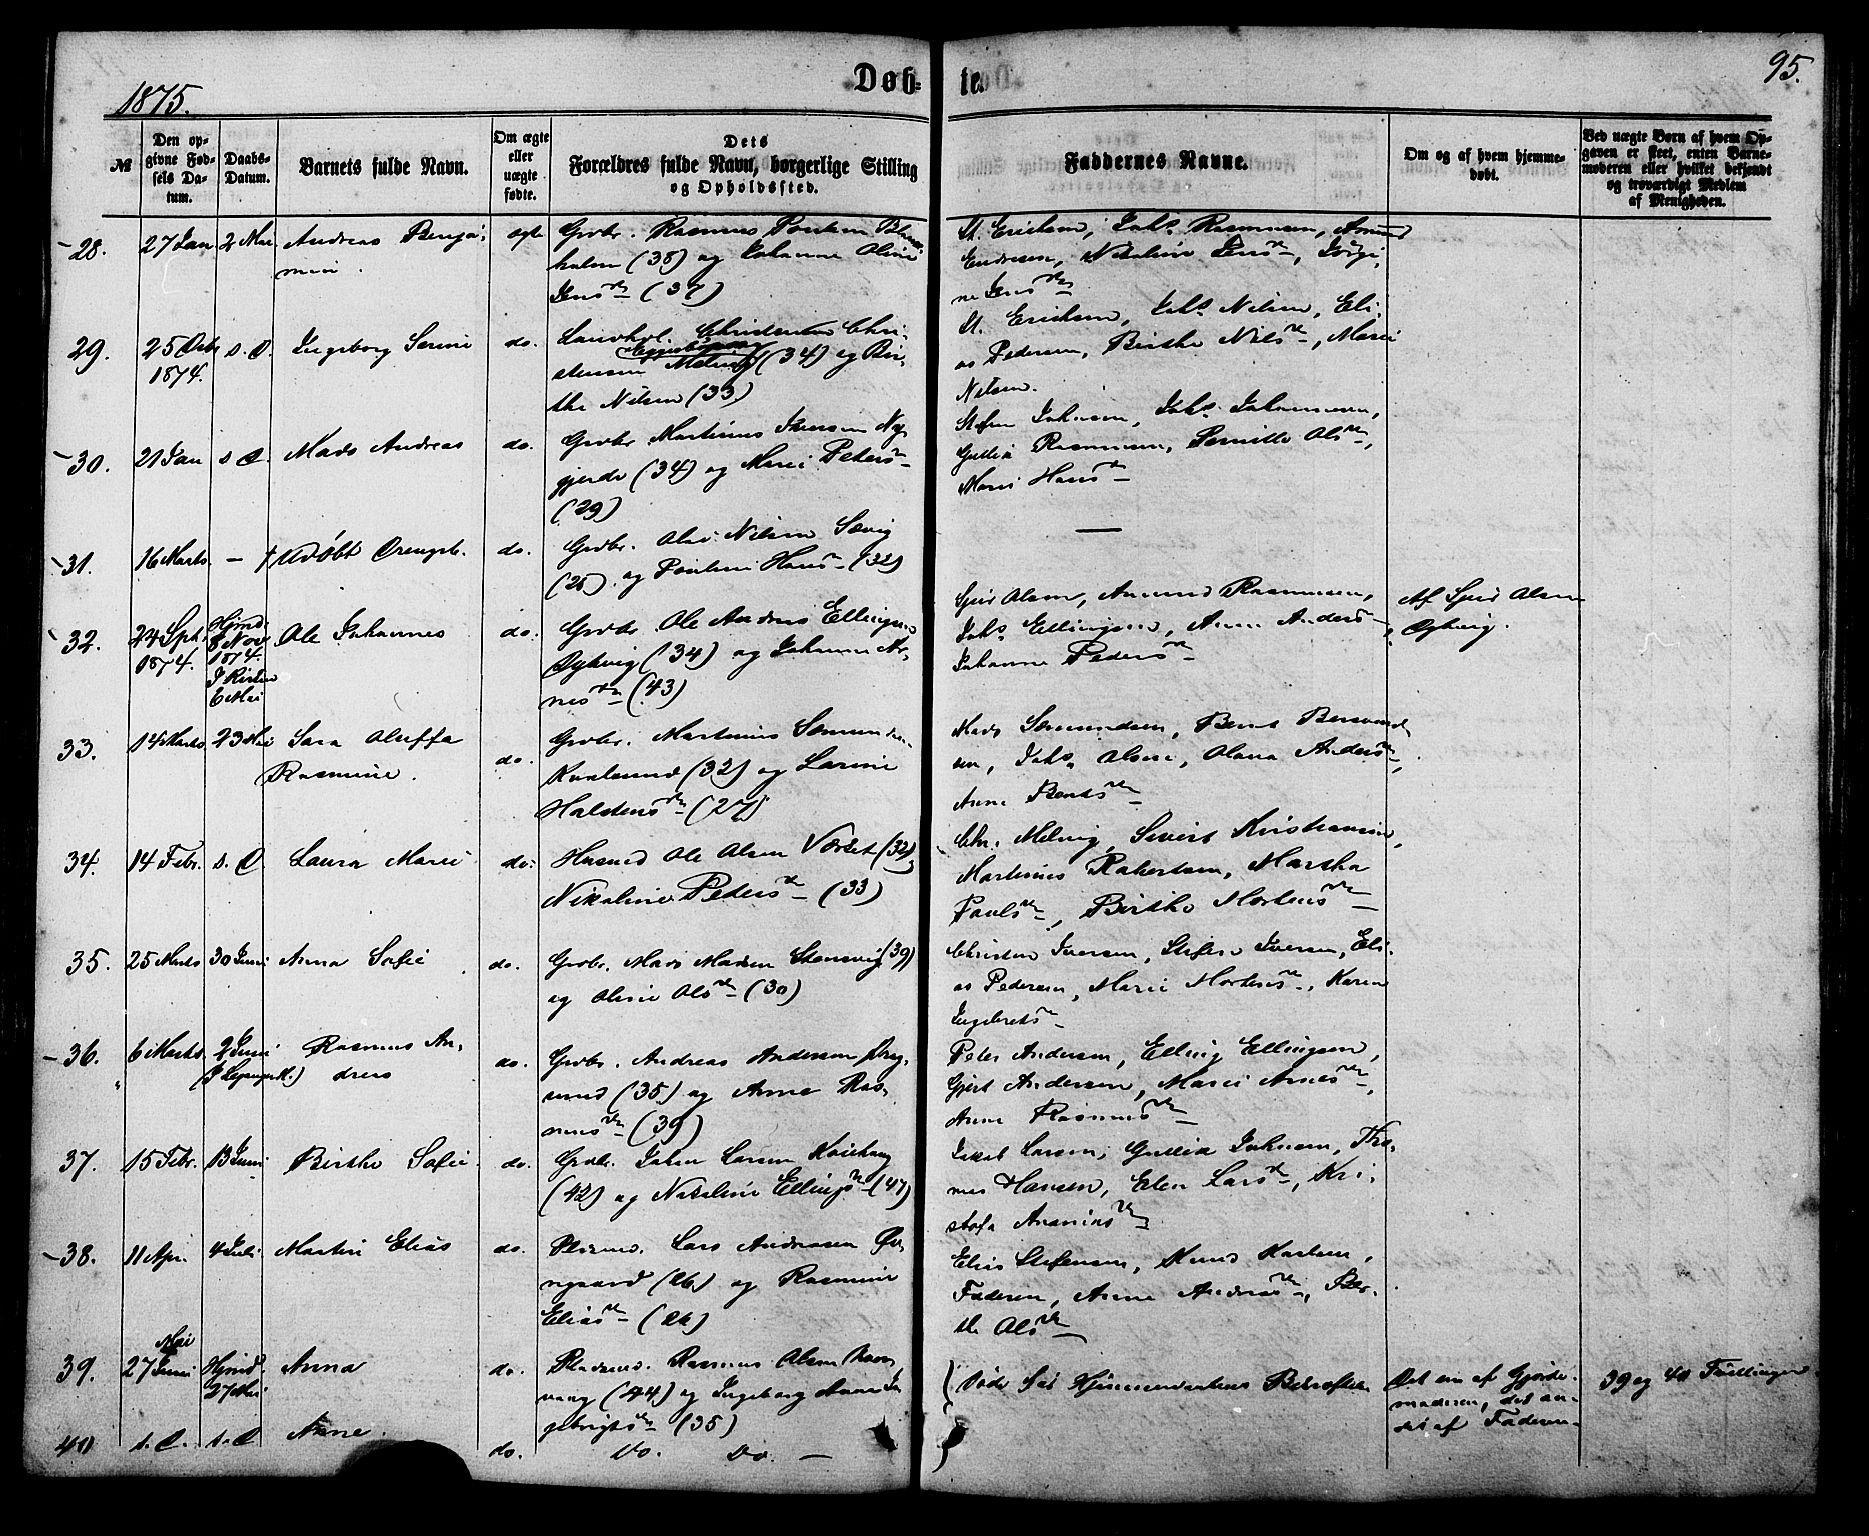 1875.
Døb-
te.
95.
№
Den op-
givne Fød-
sels Da-
tum.
Daabs-
Datum.
Barnets fulde Navn.
Om ægte
eller
uægte
fødte.
Dets
Forældres fulde Navn, borgerlige Stilling
og Opholdssted.
Faddernes Navne.
Om og af hvem hjemme-
døbt.
Ved uægte Børn af hvem Op-
gaven er skeet, enten Barne-
moderen eller hvilket bekjendt
og troværdigt Medlem
af Menigheden.
28.
27 Jan
2 Mai
Andreas Benja-
min.
egte
Grbr. Rasmus Poulsen
holm (38) og Johanne Oline
Jensdtr (37)
St. Ericksen, Johs Rasmussen, Amund
Endresen, Nikoline Jensdtr, Jørgi-
ne Jensdtr
29.
25 Octr
1874.
s. D.
Ingeborg Serine
do.
Christensen Chri-
stensen Melvig (34) og Bir-
the Nilsen (33)
St. Ericksen, Johs Nilsen, Eli-
as Pedersen, Birthe Nilsdtr, Marie
Nilsen.
30.
21 Jan
s. D.
Mads Andreas
do.
Grbr. Martinus Iversen Ny-
gjerde (34) og Marie Petersdtr
(29)
Stefen Johnsen, Johs Johannesen,
Gullik Rasmussen, Pernille Olsdtr,
Marie Hansdtr
31.
16 Marts.
—
† Udøbt Drengeb.
do.
Grbr. Ole Nilsen Sævig
(28) og Pouline Hansdtr (32)
—
32.
24 Spt.
1874.
Hjmd.
8 Nov
1874.
I Kirken
6 Mai
Ole Johannes
do.
Grbr. Ole Andreas Ellingsen
Dyhvig (34) og Johanne Ar-
nesdtr (43)
Sjur Olsen, Amund Rasmussen,
Johs Ellingsen, Anne Andersdtr,
Johanne Pedersdtr
Af Sjur Olsen
Dyhvig.
33.
14 Marts
23 Mai
Sara Oluffa
Rasmine.
do.
Grbr. Martinus Sæmundsen
Kvalsund (32) og Larine
Halstensdtr (27)
Mads Sæmundsen, Bernt Bersvend-
sen, Johs Olsen, Olava Andersdtr,
Anne Berntsdtr
34.
14 Febr.
s. D
Laura Marie
do.
Husmd Ole Olsen Vorset (32)
Nikoline Pedersdtr (33)
Chr. Melvig, Sivert Kristiansen,
Martinus Robertsen, Martha
Povlsdtr, Birthe Mortensdtr
35.
25 Marts
30 Juni
Anna Sofie
do.
Grbr. Mads Madsen Stensvig (39)
og Oline Olsdtr (30)
Christen Iversen, Stefen Iversen, Eli-
as Pedersen, Marie Mortensdtr, Karen
Ingebretsdtr
36.
6 Marts.
2 Juni
Rasmus An-
dreas
do.
Grbr. Andreas Andersen Drag-
sund (35) og Anne Ras-
musdtr (39)
Peter Andersen, Elling Ellingsen,
Gjert Andersen, Marie Arnesdtr,
Anne Rasmusdtr
37.
15 Febr.
13 Juni
Birthe Sofie.
do.
Grbr. Johan Larsen
(42) og Nikoline Ellingsdtr (47)
Jakob Larsen, Gullik Johnsen, Tho-
mas Hansen, Elen Larsdtr, Kri-
stofa Ananiasdtr
38.
11 Apr.
4 Juli
Martin Elias
do.
Pladsmd. Lars Andreasen Øv-
regaard (26) og Rasmine
Eliasdtr (26)
Elias Stefensen, Knud Karlsen,
Faderen, Anne Andreasdtr, Ber-
the Olsdtr
39.
Mai
27 Juni
Hjmd
27 Mai
Anna
do.
Pladsmd. Rasmus Olsen
(44) og Ingeborg Anne In-
gebrigtsdtr (35)
Døde før Hjemmedaabens Bekræftelse
Det ene af Gjorde-
moderen, det an-
det af Faderen
39 og 40 Tvillinger
40
s. D.
s. D
Anne.
do.
Do. Do. —